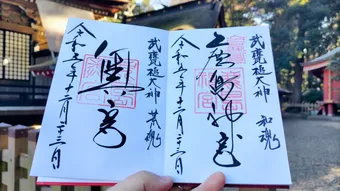 武甕槌大神 和魂
鹿島神宮
令和五年十二月二十三日
武甕槌大神 荒魂
奥宮
令和五年十二月二十三日